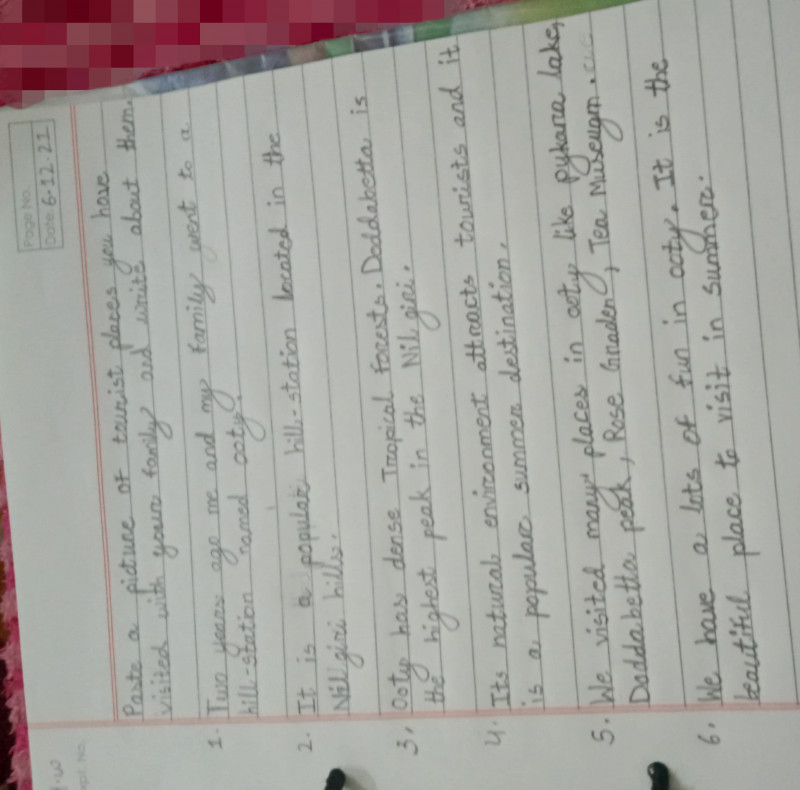 Page No.
Date: 6.12.21
Paste a picture of tourist places you have
visited with your family and write about them.
1. Two years ago me and my family went to a
hill-station named ooty.
2. It is a popular hill-station located in the
Nilgiri hills.
3. Ooty has dense Tropical forests. Doddabetta is
the highest peak in the Nilgiri.
4. Its natural environment attracts tourists and it
is a popular summer destination.
5. We visited many places in ooty like pykara lake,
Doddabetta peak, Rose Graden, Tea Museugm.
6. We have a lots of fun in ooty. It is the
beautiful place to visit in summer.